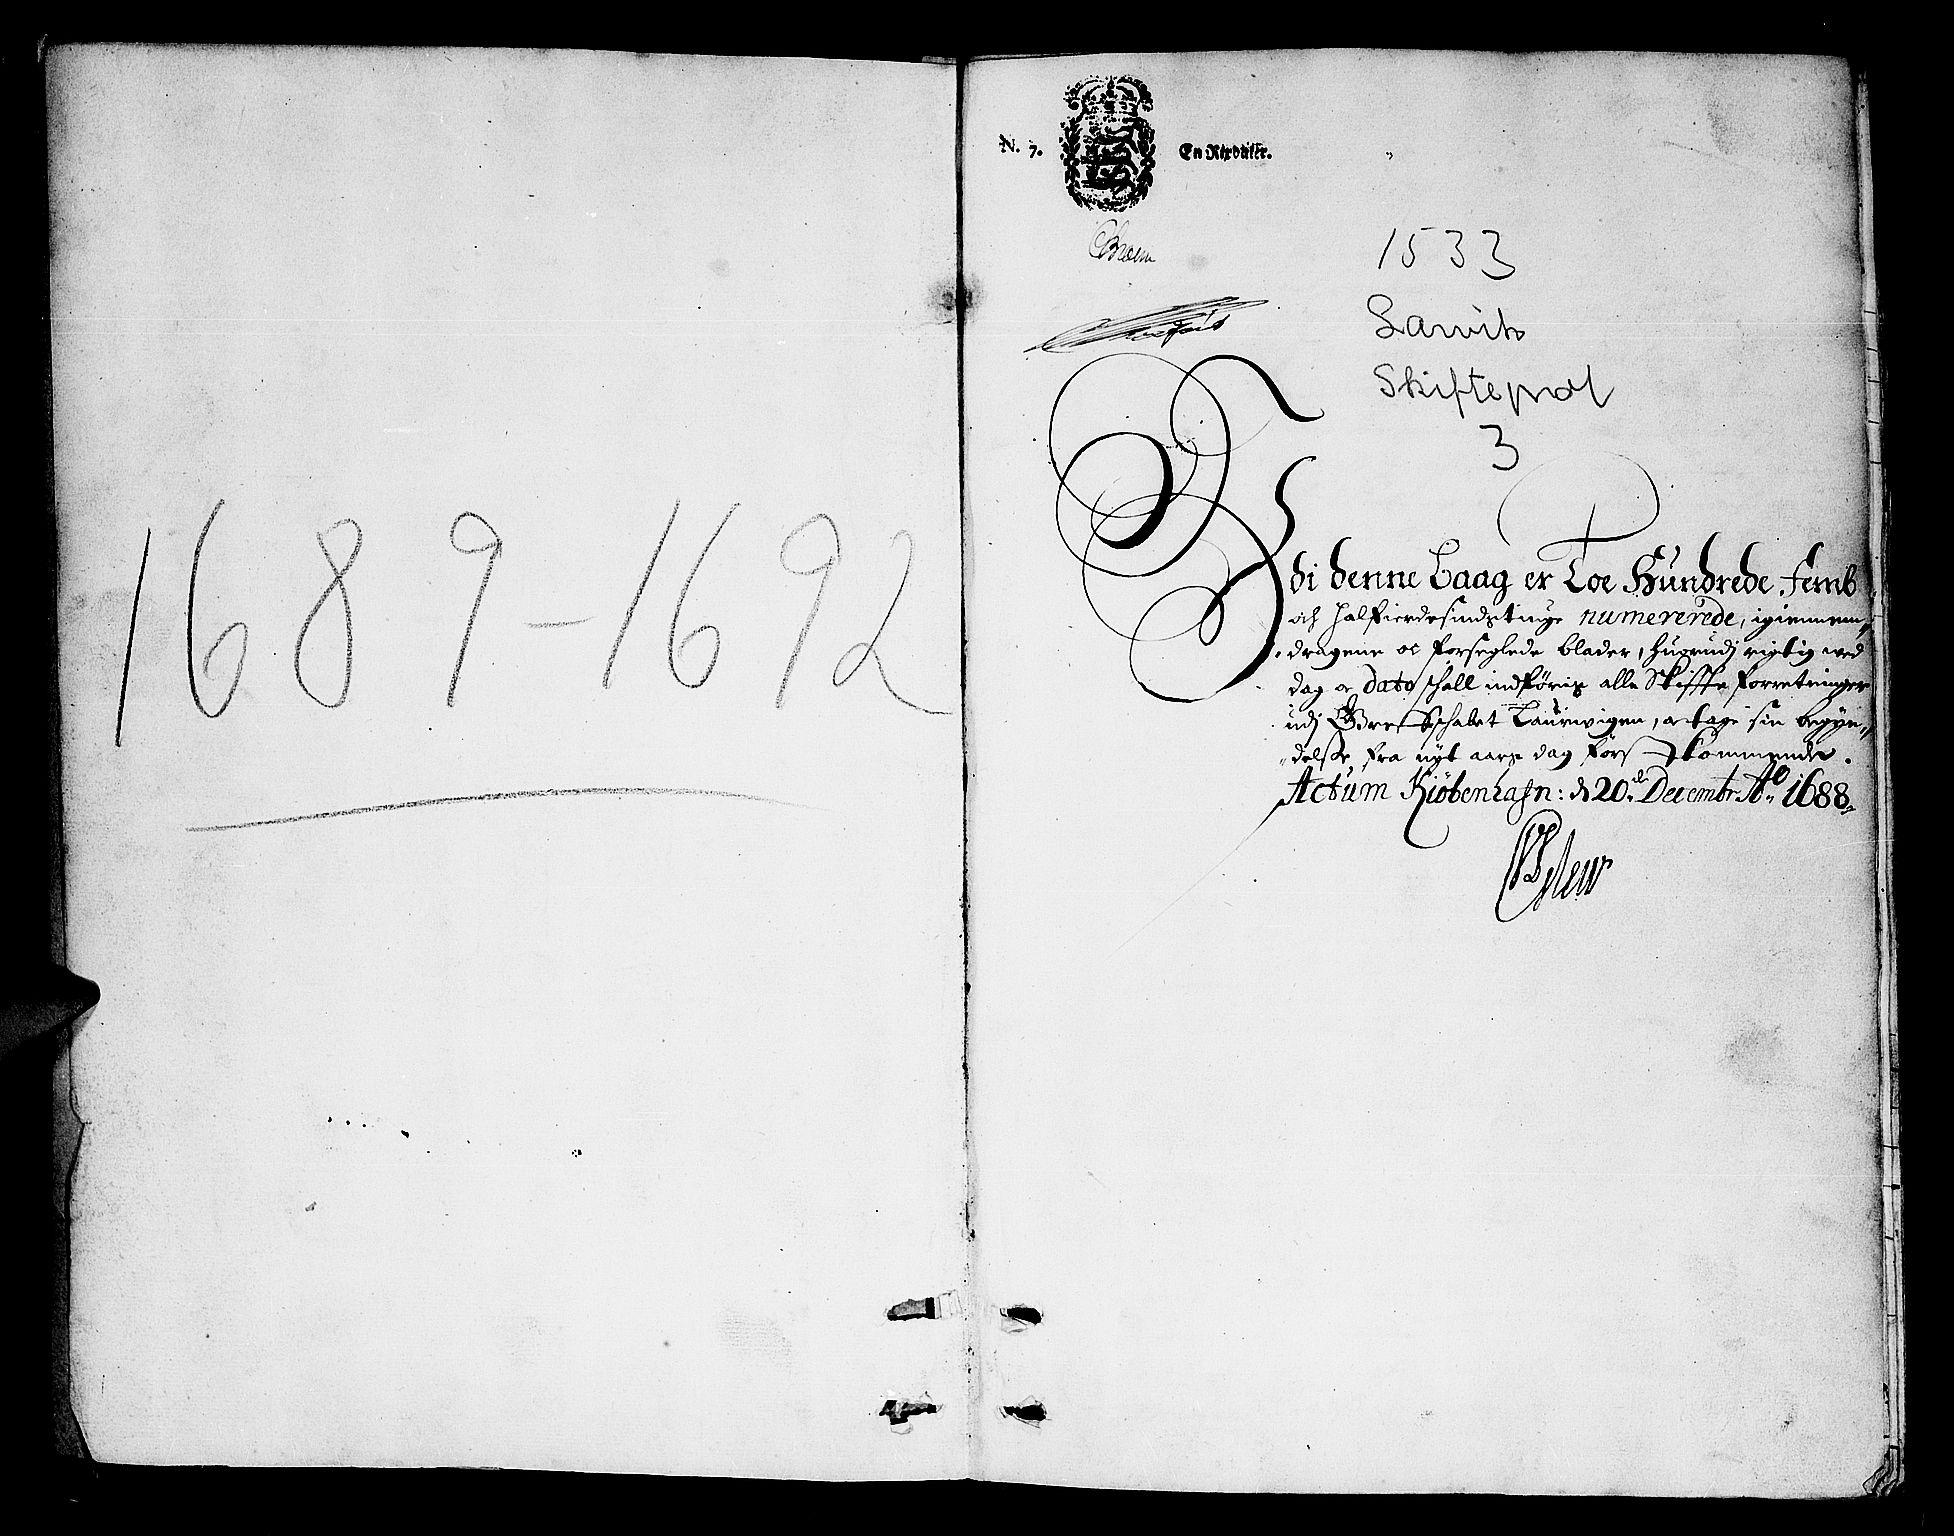 1689-1692
N. 7. En Rixdaler.
1533
Larvik
Skifteprot
3
Udi denne Baag er Toe Hundrede Femb
och halffierdesindstiuge numererede, igiennem„
dragene oc forseglede blader, huorudj rigtig ved
dag oc dato schall indføris alle Skiffte Forretninger
udj Grefschabet Laurwigen, oc tage sin begÿn„
„delse fra nyt aars dag først kommende.
Actum Kiøbenhafn: d 20. Decembr. Aº 1688